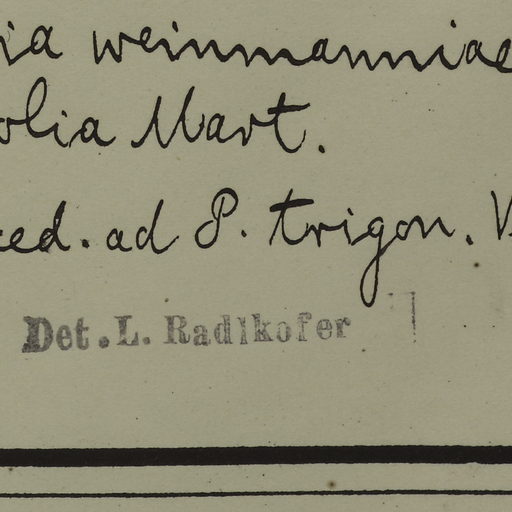 ia weinmanniae
olia Mart.
ced. ad P. trigon. V
Det. L. Radlkofer